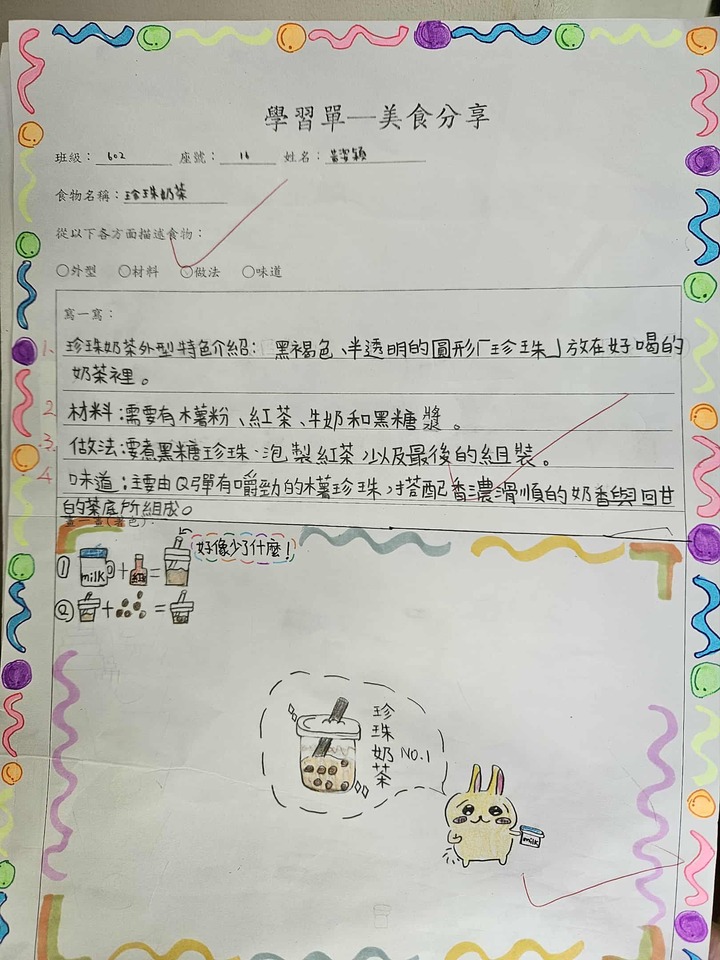 學習單—美食分享
班級：602 座號：16 姓名：黃姿穎
食物名稱：珍珠奶茶
從以下各方面描述食物：
○外型 ○材料 ○做法 ○味道
寫一寫：
1. 珍珠奶茶外型特色介紹：黑褐色、半透明的圓形「珍珠」放在好喝的
奶茶裡。
2. 材料：需要有木薯粉、紅茶、牛奶和黑糖漿。
3. 做法：要煮黑糖珍珠、泡製紅茶，以及最後的組裝。
4. 味道：主要由Q彈有嚼勁的木薯珍珠，搭配香濃滑順的奶香與回甘
的茶底所組成。
畫一畫（著色）：
① milk + 紅茶 = 好像少了什麼！
② + =
珍珠奶茶 NO.1
milk